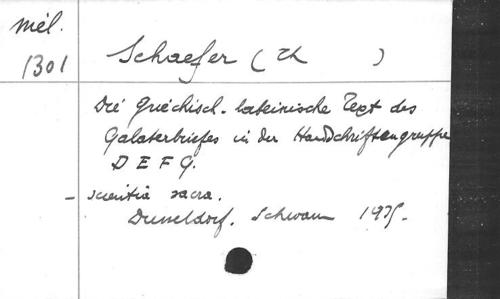 Mél.
1301
Schaefer (Th )
Die Griechisch-lateinische Text des
Galaterbriefes in der Handschriftengruppe
D E F G.
- scientia sacra.
Dusseldorf. Schwann 1935.